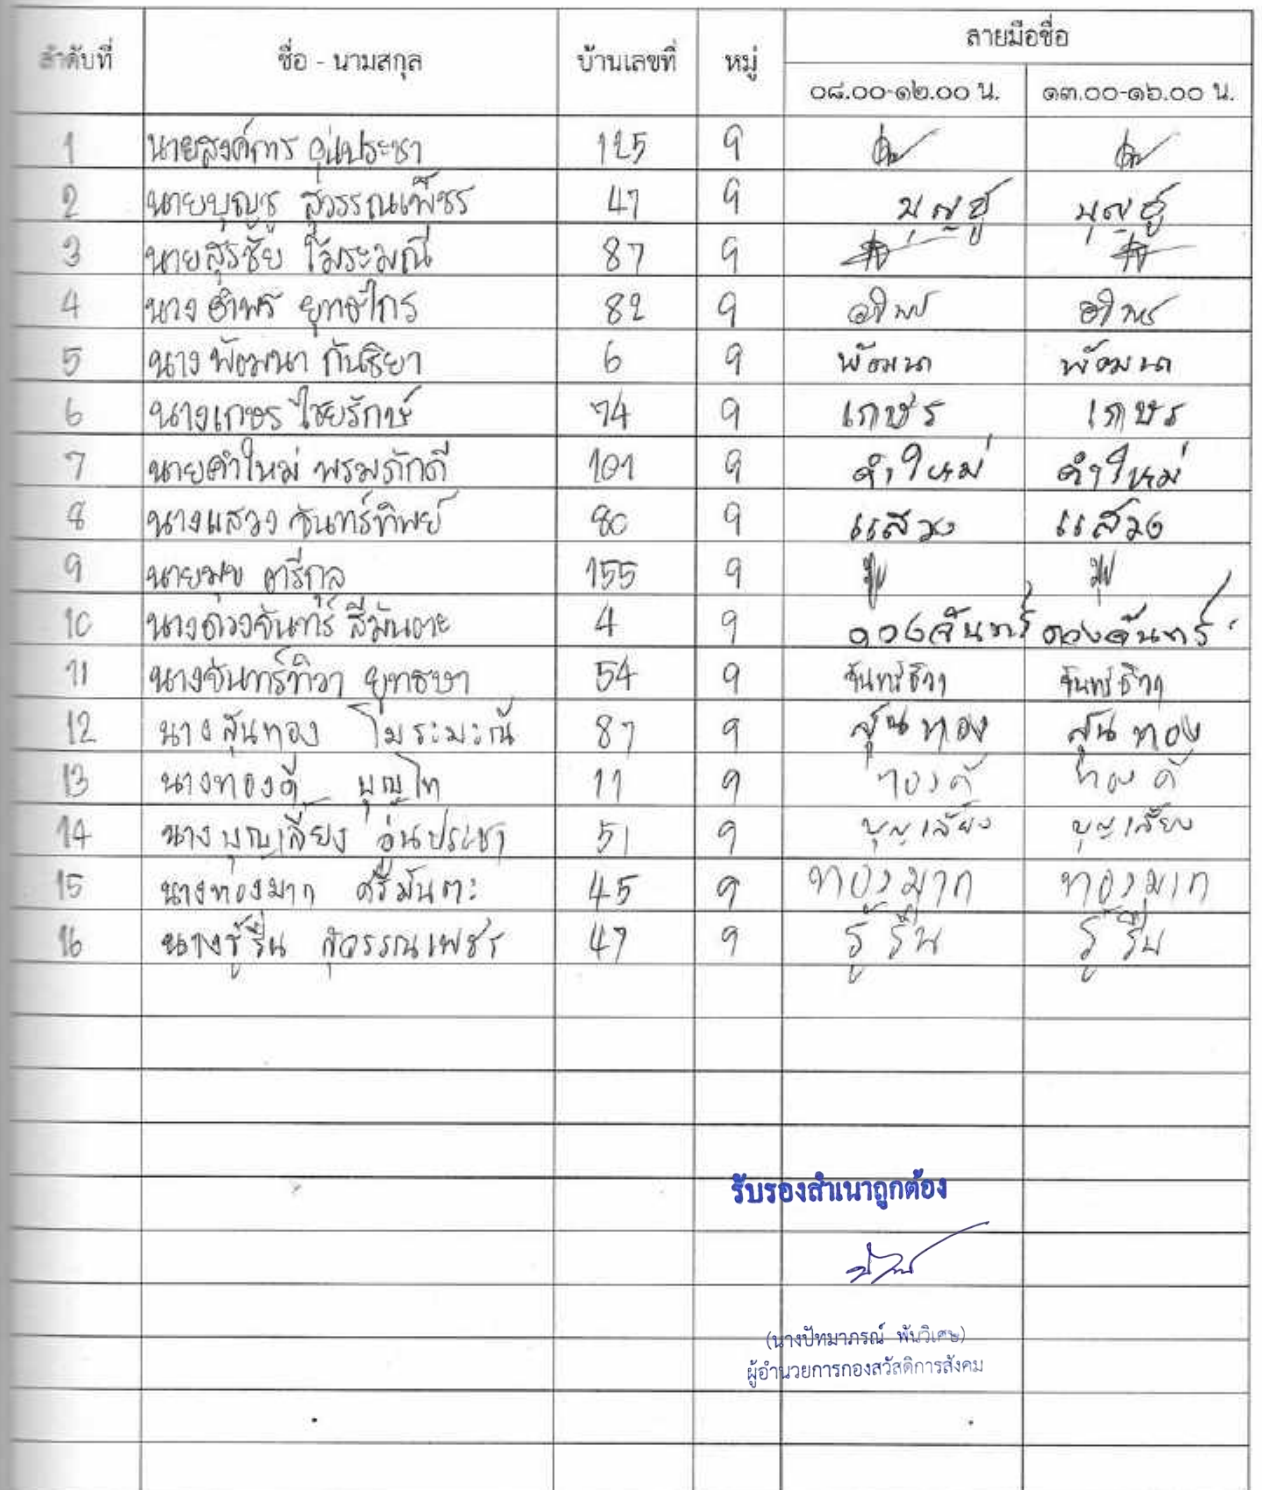 ลำดับที่ ชื่อ - นามสกุล บ้านเลขที่ หมู่ ลายมือชื่อ
๐๘.๐๐-๑๒.๐๐ น. ๑๓.๐๐-๑๖.๐๐ น.
1 นายสงค์การ อุ่นประชา 125 9
2 นายบุญชู สุวรรณเพ็ชร 47 9 บุญชู บุญชู
3 นายสุรชัย โมระมณี 87 9
4 นางอำพร ยุทธไกร 82 9 อำพร อำพร
5 นางพัฒนา กันธิยา 6 9 พัฒนา พัฒนา
6 นางเกษร ไชยรักษ์ 74 9 เกษร เกษร
7 นายคำใหม่ พรมภักดี 101 9 คำใหม่ คำใหม่
8 นางแสวง จันทร์ทิพย์ 80 9 แสวง แสวง
9 นายมุข ตรีกุล 155 9 มุข มุข
10 นางดวงจันทร์ สีมันตะ 4 9 ดวงจันทร์ ดวงจันทร์
11 นางจันทร์ทิวา ยุทธษา 54 9 จันทร์ธิวา จันทร์ธิวา
12 นางสุ่นทอง โมระมะณี 87 9 สุ่นทอง สุ่นทอง
13 นางทองดี บุญโท 11 9 ทองดี ทองดี
14 นางบุญเลี้ยง อุ่นประชา 51 9 บุญเลี้ยง บุญเลี้ยง
15 นางทองมาก ศรีมันตะ 45 9 ทองมาก ทองมาก
16 นางรู้รื่น สุวรรณเพชร 47 9 รู้รื่น รู้รื่น
รับรองสำเนาถูกต้อง
(นางปัทมาภรณ์ พันวิเศษ)
ผู้อำนวยการกองสวัสดิการสังคม